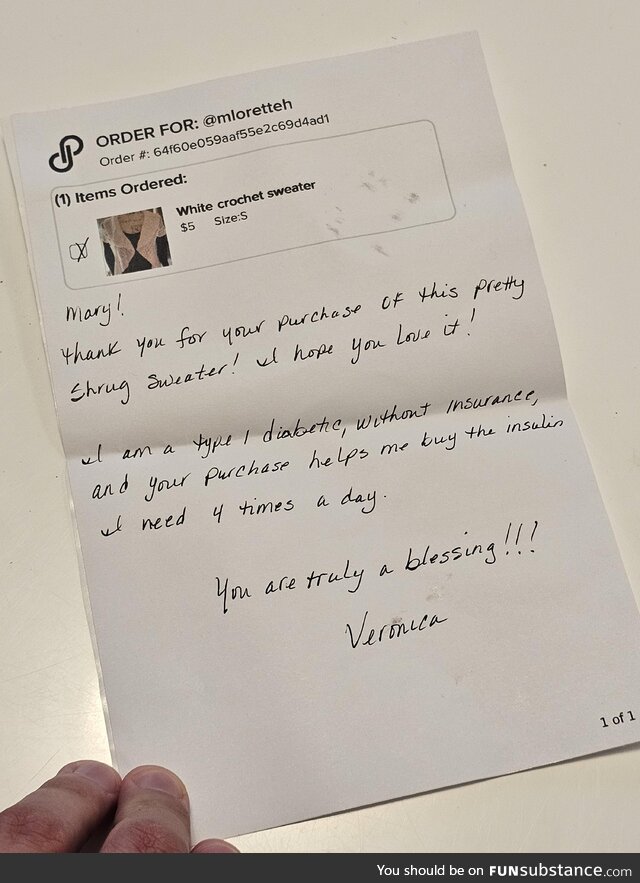 ORDER FOR: @mloretteh
Order #: 64f60e059aaf55e2c69d4ad1
(1) Items Ordered:
White crochet sweater
$5 Size:S
Mary!
Thank you for your purchase of this pretty
Shrug Sweater! I hope you Love it!
I am a type 1 diabetic, without insurance,
and your purchase helps me buy the insulin
I need 4 times a day.
You are truly a blessing!!!
Veronica
1 of 1
You should be on FUNsubstance.com